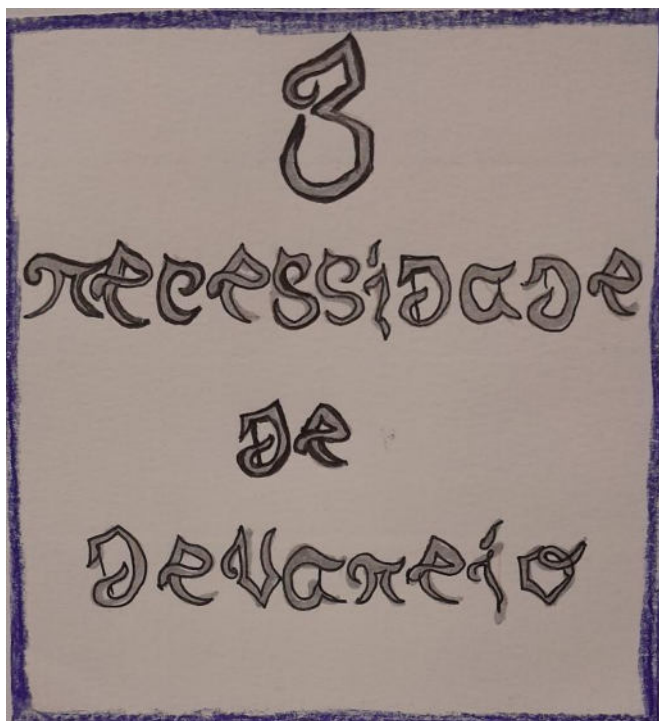 3
necessidade
de
devaneio